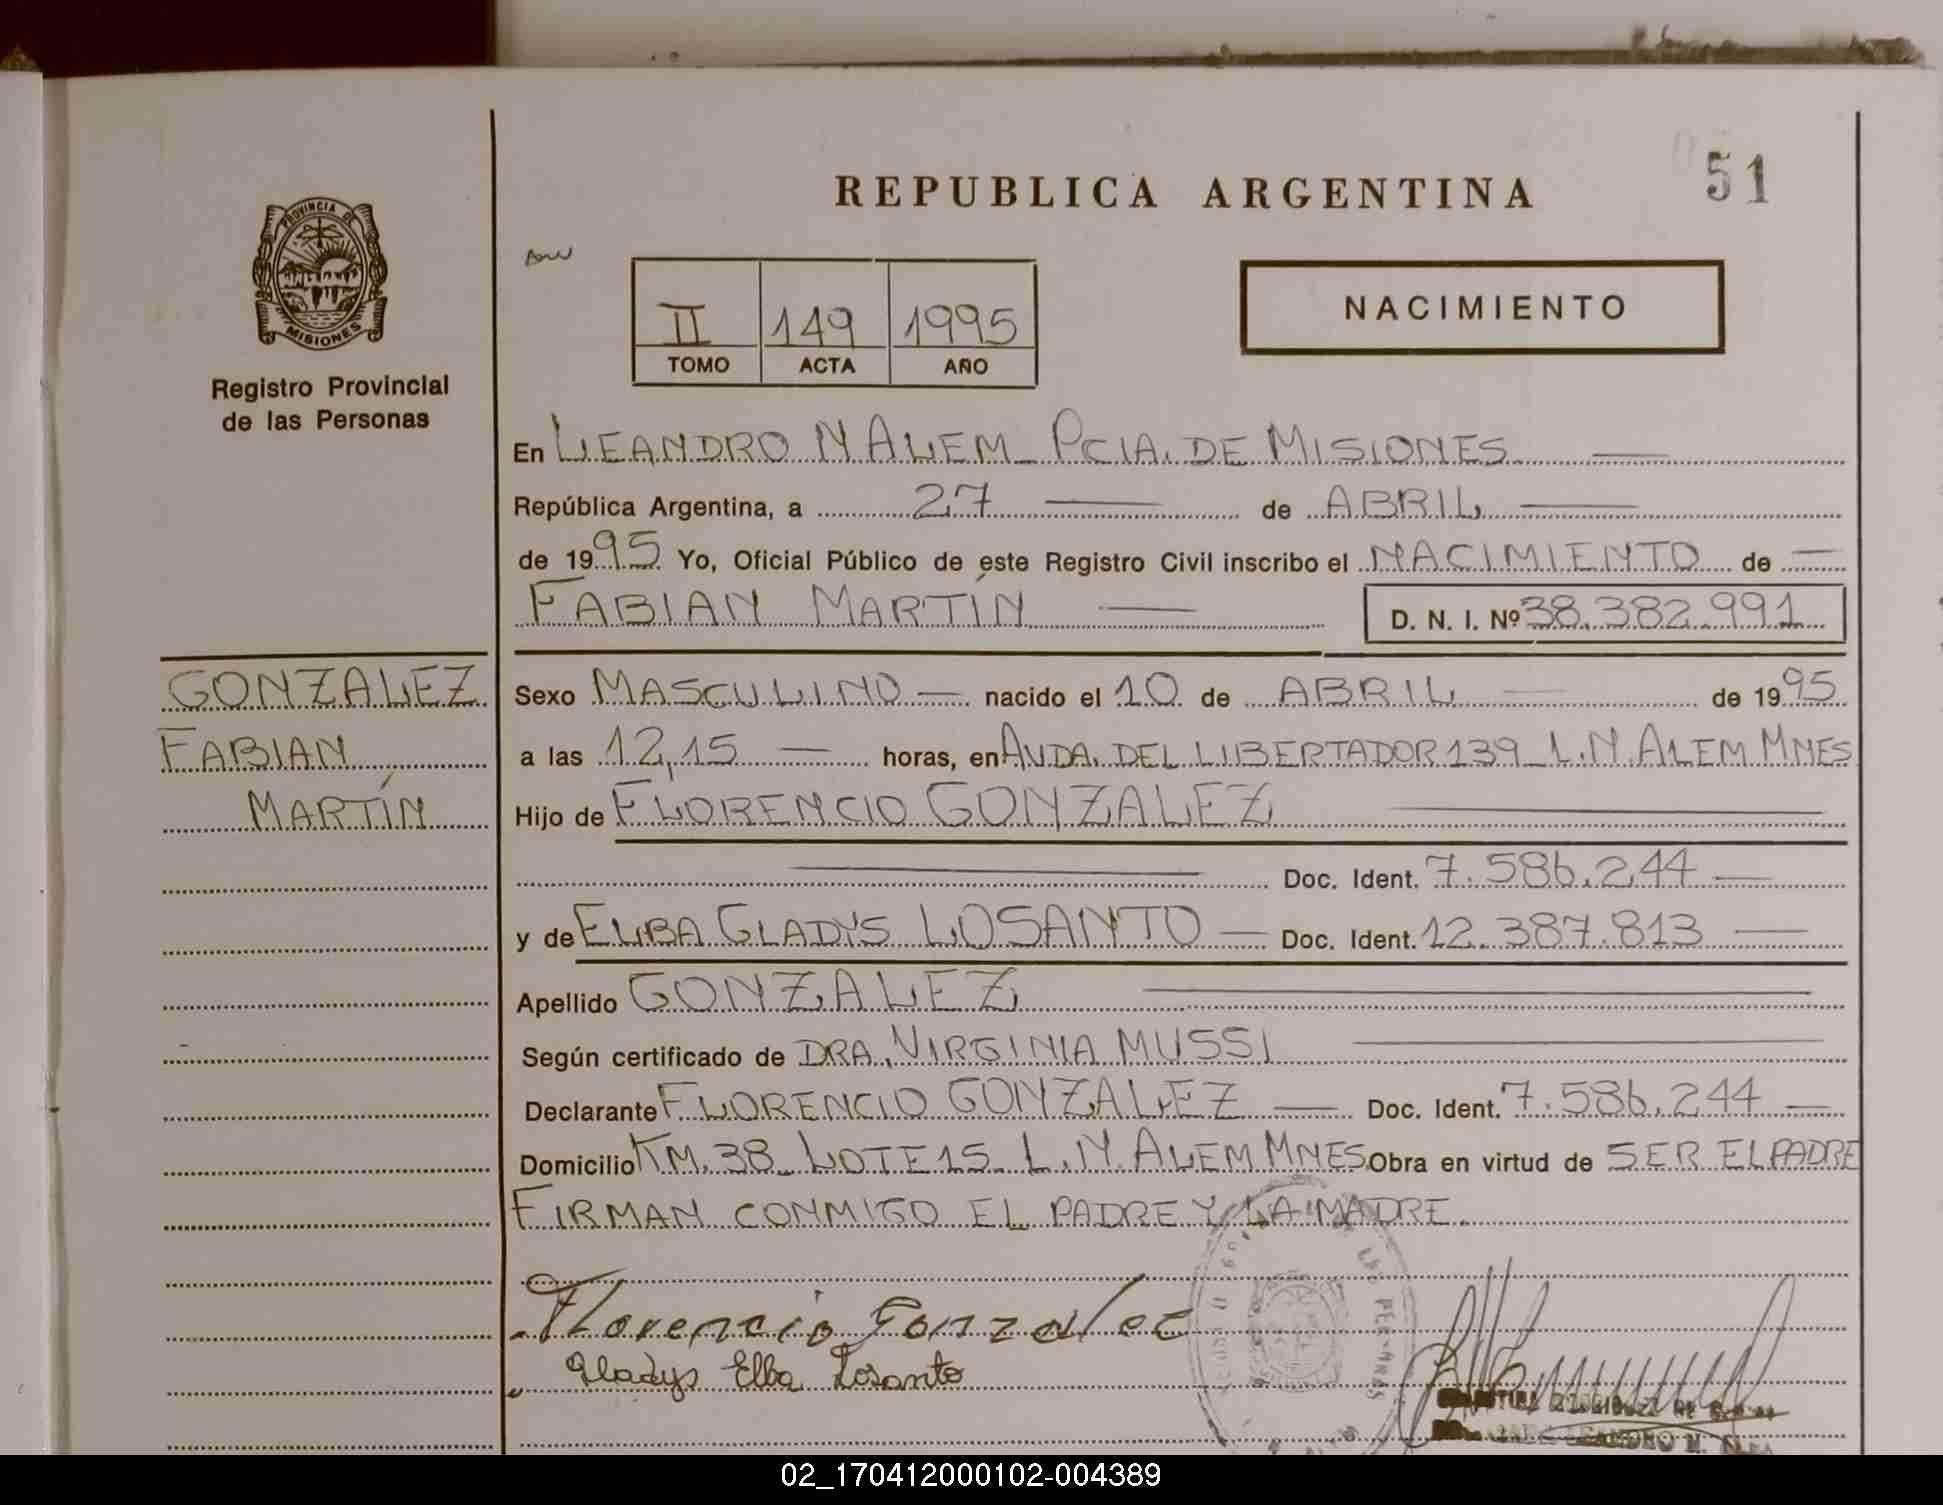 REPUBLICA ARGENTINA
51
PROVINCIA DE
MISIONES
Registro Provincial
de las Personas
II 149 1995
TOMO ACTA AÑO
NACIMIENTO
En LEANDRO N ALEM - PCIA. DE MISIONES
República Argentina, a 27 de ABRIL
de 1995 Yo, Oficial Público de este Registro Civil inscribo el NACIMIENTO de
FABIAN MARTÍN D. N. I. Nº 38.382.991
GONZALEZ
FABIAN
MARTÍN
Sexo MASCULINO nacido el 10 de ABRIL de 1995
a las 12,15 horas, en AVDA. DEL LIBERTADOR 139 - L.N. ALEM MNES
Hijo de FLORENCIO GONZALEZ
Doc. Ident. 7.586.244
y de ELBA GLADYS LOSANTO Doc. Ident. 12.387.813
Apellido GONZALEZ
Según certificado de DRA. VIRGINIA MUSSI
Declarante FLORENCIO GONZALEZ Doc. Ident. 7.586.244
Domicilio KM. 38 - LOTE 15 - L.N. ALEM MNES Obra en virtud de SER EL PADRE
FIRMAN CONMIGO EL PADRE Y LA MADRE.
Florencio Gonzalez
Gladys Elba Losanto
LEANDRO N.
02_170412000102-004389